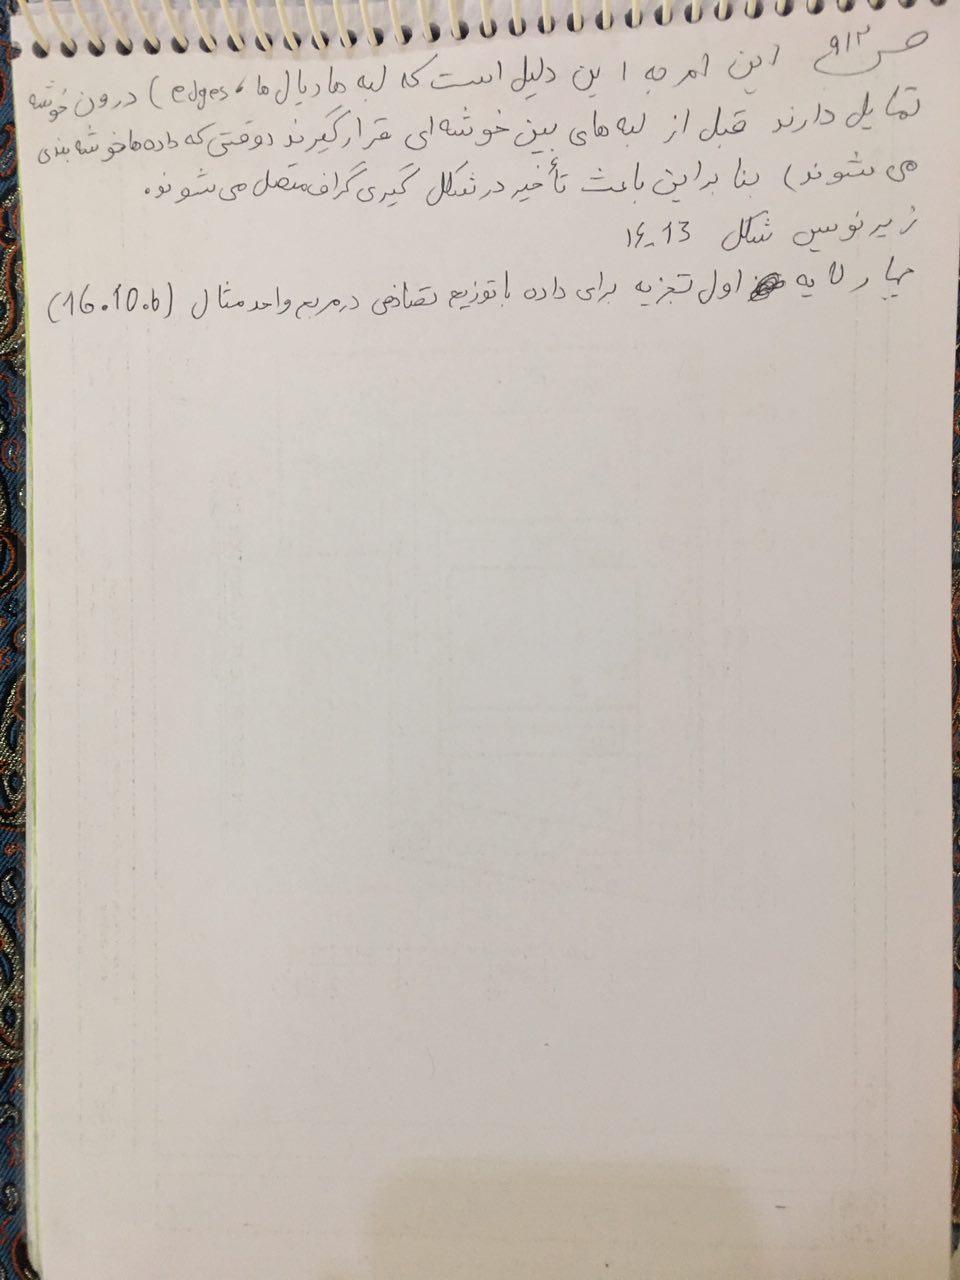 ص ۹۱۲ این امر به این دلیل است که لبه ها (یال ها، edges) درون خوشه
تمایل دارند قبل از لبه های بین خوشه ای قرار گیرند (وقتی که داده ها خوشه بندی
می شوند) بنابراین باعث تأخیر در شکل گیری گراف متصل می شوند.
زیرنویس شکل 13-۱۶
چهار لایه اول تجزیه برای داده با توزیع تصادفی در مربع واحد مثال (16.10.b)